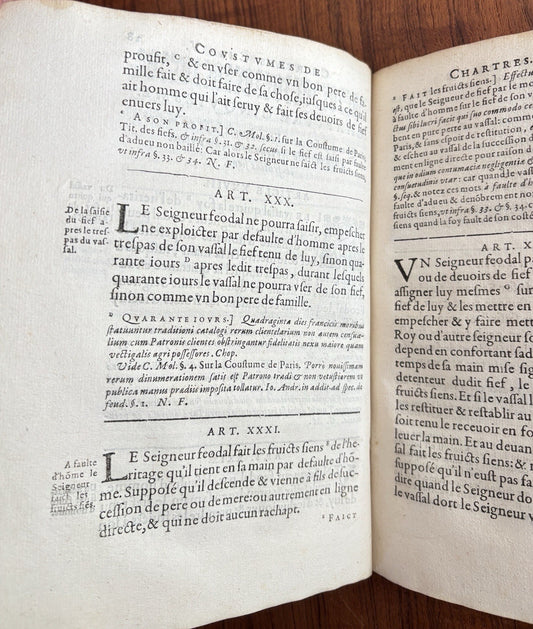 COVSTVMES DE
proufit, ᶜ & en vser comme vn bon pere de fa-
mille fait & doit faire de sa chose, iusques à ce qu'il
ait homme qui l'ait seruy & fait ses deuoirs de fief
enuers luy.
ᶜ A SON PROFIT.] C. Mol. §. 1. sur la Coustume de Paris,
Tit. des fiefs, & infra §. 31. & 32. secus si le fief est saisi par faulte
d'adueu non baillé: Car alors le Seigneur ne faict les fruicts siens,
vt infra §. 33. & 34. N. F.
ART. XXX.
De la saisie
du fief a-
pres le tres-
pas du vas-
sal.
LE Seigneur feodal ne pourra saisir, empescher
ne exploicter par defaulte d'homme apres le
trespas de son vassal le fief tenu de luy, sinon qua-
rante iours ᴰ apres ledit trespas, durant lesquels
quarante iours le vassal ne pourra vser de son fief,
sinon comme vn bon pere de famille.
ᴰ QVARANTE IOVRS.] Quadraginta dies francicis moribus
statuuntur traditioni catalogi rerum clientelarium non autem censua-
lium cum Patronis clientes obstringantur fidelitatis nexu maiore quàm
vectigalis agri possessores. Chop.
Vide C. Mol. §. 4. Sur la Coustume de Paris. Porro nouissimam
rerum dinumerationem satis est Patrono tradi & non vetustiorem vt
publica manus pradiis imposita tollatur. Io. Andr. in addit. ad spec. de
feud. §. 2. N. F.
ART. XXXI.
A faulte
d'hôme le
Seigneur
faict les
fruicts siés.
LE Seigneur feodal fait les fruicts siens ᴱ de l'he-
ritage qu'il tient en sa main par defaulte d'hô-
me. Supposé qu'il descende & vienne à fils de suc-
cession de pere ou de mere: ou autrement en ligne
directe, & qui ne doit aucun rachapt.
ᴱ FAICT
CHARTRES.
ᴱ FAIT les fruicts siens.] Effectu
est, que le Seigneur de fief peut me
à faulte d'homme sur le fief de son v
ctus sibi lucri facit qui suo modo con
bent en pure perte au vassal: Contr
Paris, & sans espoir de restitution,
& eschen au vassal de la mouuance d
men en ligne directe pour raison duq
in odium contumacie negligentie
consuetudine: car quando le vassal
§. seq. & notez ces mots, à faulte d'
d'adueu & denôbrement non
fruicts siens, vt infra §. 33. & §. 34.
quand la foy fault de son costé
ART. X
VN Seigneur feodal p
ou de deuoirs de fief
assigner luy mesmes
de fief, & les mettre en
empescher & y faire mett
Roy ou d'autre seigneur
depend en confortant sad
temps de sa main mise sig
detenteur dudit fief, le
fief, & si le vassal
les restituer & restablir au
ton le receuoir en fo
leuer la main. Et au deuan
pposé qu'il n'eust pas
dire quand le Seigneur d
le vassal dort le Seigneur v